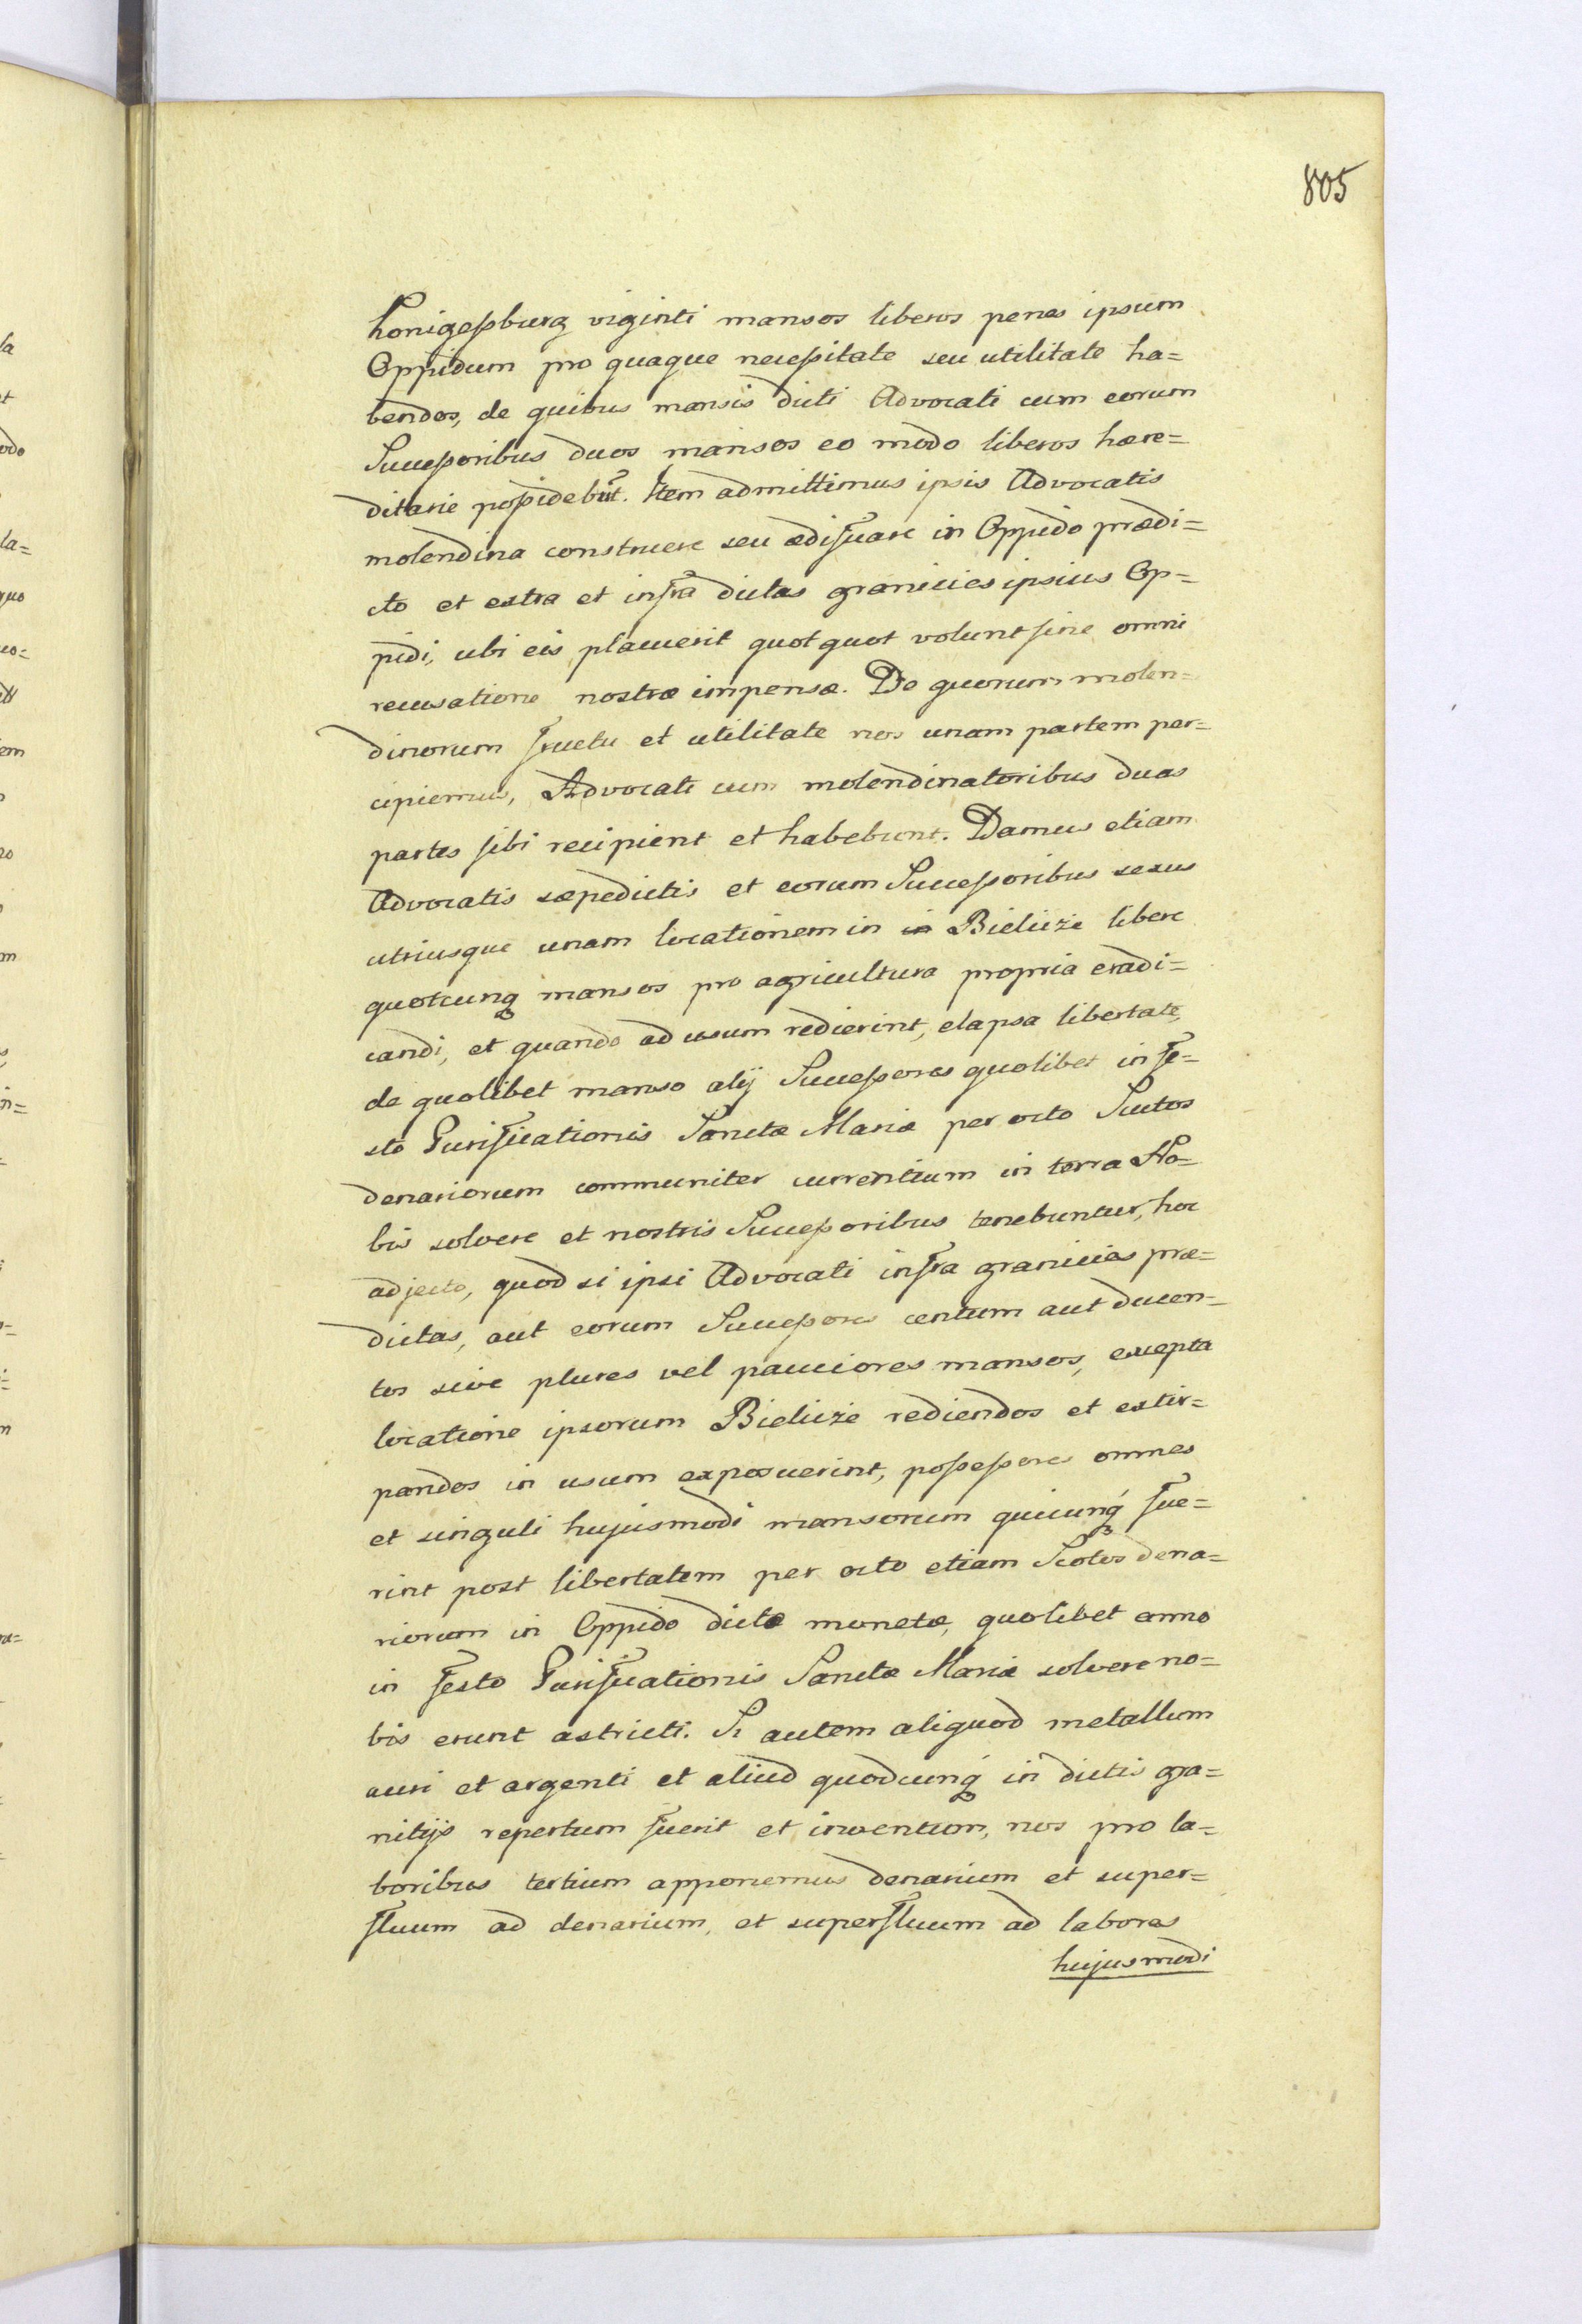 805
Honigeßburg viginti mansos liberos penes ipsum
Oppidum pro quaque neceßitate seu utilitate ha=
bendos, de quibus mansis dicti Advocati cum eorum
Succeßoribus duos mansos eo modo liberos hære=
ditarie poßidebūt. Item admittimus ipsis Advocatis
molendina construere seu ædificare in Oppido prædi=
cto et extra et infra dictas granicies ipsius Op=
pidi, ubi eis placuerit quotquot volunt sine omni
recusatione nostræ impensæ. De quorum molen=
dinorum fructu et utilitate nos unam partem per=
cipiemus, Advocati cum molendinatoribus duas
partes sibi recipient et habebunt. Damus etiam
Advocatis sæpedictis et eorum Succeßoribus sexus
utriusque unam locationem in in Bieliczie libere
quotcunq mansos pro agricultura propria eradi=
candi, et quando ad usum redierint, elapsa libertate,
de quolibet manso alij Succeßores quolibet in fe=
sto Purificationis Sanctæ Mariæ per octo Scutos
denariorum communiter currentium in terra No=
bis solvere et nostris Succeßoribus tenebuntur, hoc
adjecto, quod si ipsi Advocati infra granicies præ=
dictas, aut eorum Succeßores centum aut ducen=
tos sive plures vel pauciores mansos, excepta
locatione ipsorum Bieliczie rediendos et extir=
pandos in usum exposuerint, poßeßores omnes
et singuli hujusmodi mansorum quicunq fue=
rint post libertatem per octo etiam Scotos dena=
riorum in Oppido dictæ monetæ, quolibet anno
in festo Purificationis Sanctæ Mariæ solvere no=
bis erunt astricti. Si autem aliquod metallum
auri et argenti et aliud quodcunq in dictis gra=
nitijs repertum fuerit et inventum, nos pro la=
boribus tertium apponemus denarium et super=
fluum ad denarium, et superfluum ad labores
hujusmodi